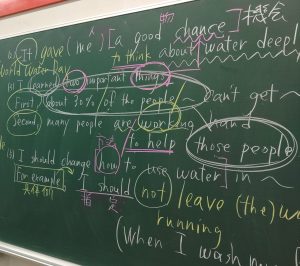 It gave (me へ) [a good chance] 機会
物
to think about water deeply
World Water Day
I learned two important things.
First, about 30% of the people ~ can't get ~
Second, many people are working hard
to help those people
I should change [how to use water] in ~
For example, I should not leave (the) w
具体例
running
(When I wash